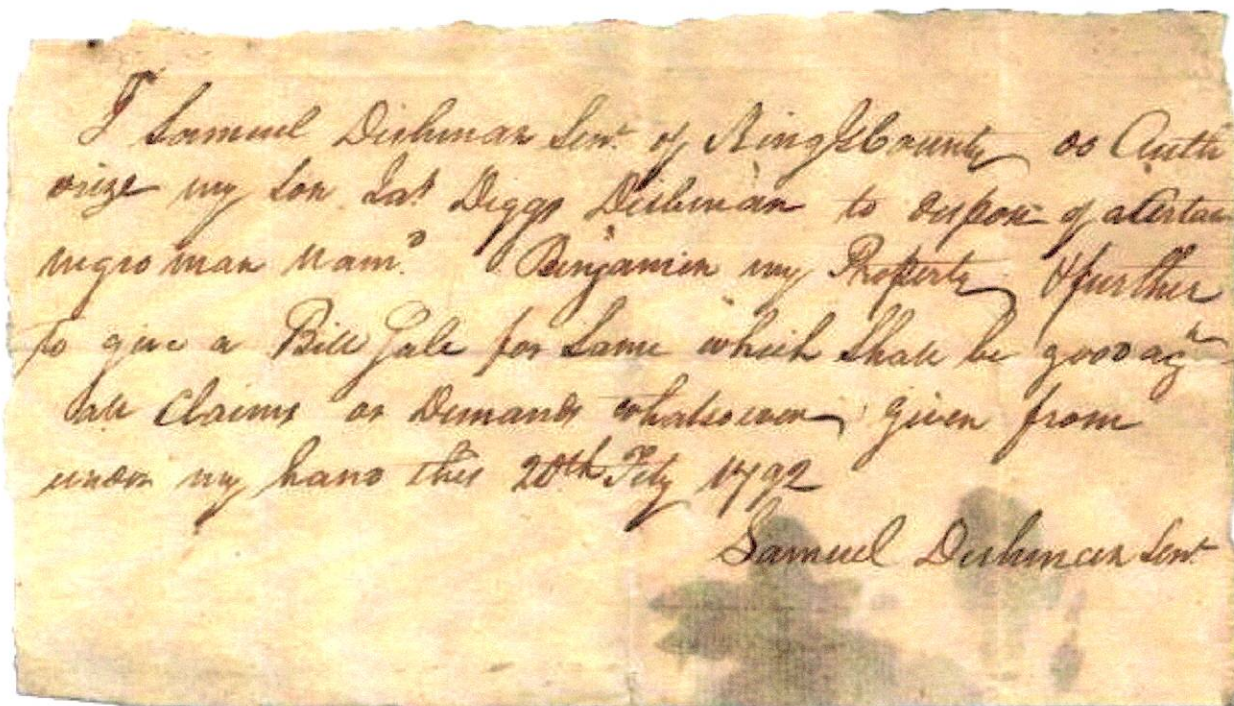 I Samuel Dishman Senr. of King G County do Auth
orize my Son Jas. Diggs Dishman to dispose of a Certain
negro man Namd. Benjamin my Property & further
to give a Bill Sale for Same which Shall be good agn
all Claims or Demands whatsoever given from
under my hand this 20th Feby 1792
Samuel Dishman Senr.